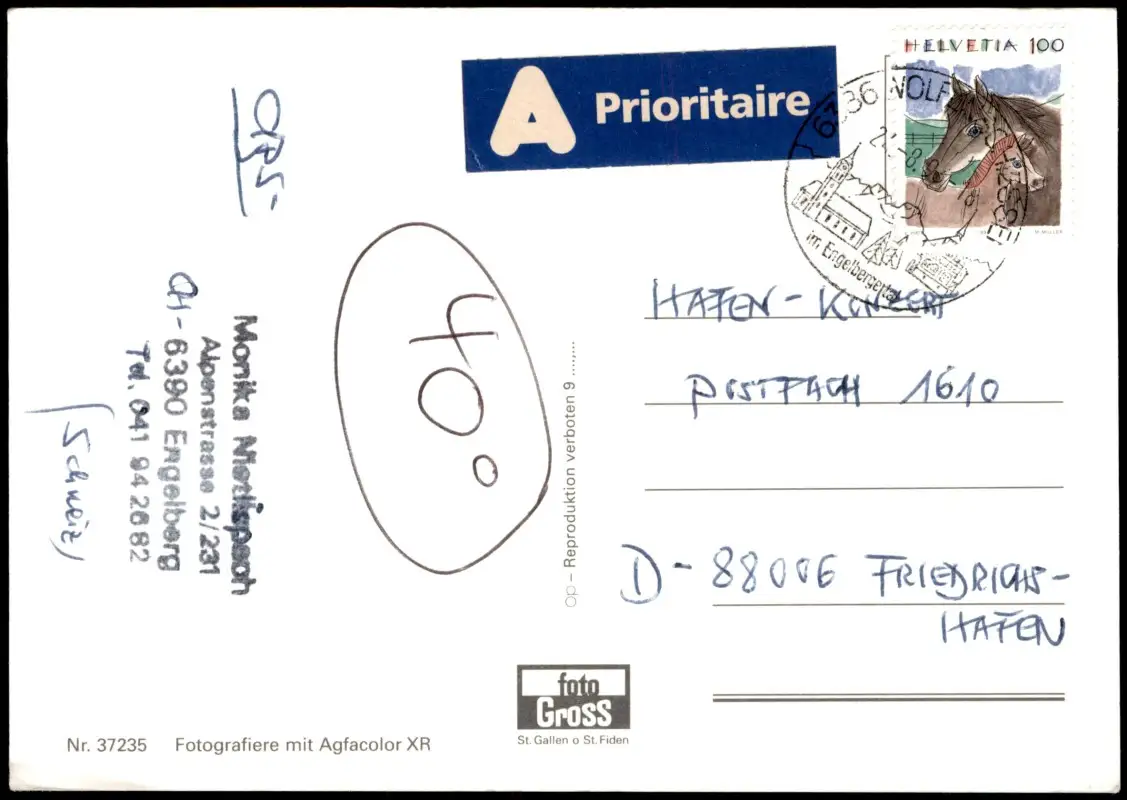 A Prioritaire
HELVETIA 100
M. MÜLLER
6386 WOLF
im Engelbergertal
ORS
Monika Nietlispach
Alpenstrasse 2/231
CH-6390 Engelberg
Tel. 041 94 26 82
(Schweiz)
40.
Op – Reproduktion verboten 9 .....,...
HAFEN-KONZERT
POSTFACH 1610
D-88006 FRIEDRICHS-
HAFEN
foto
Gross
St. Gallen o St. Fiden
Nr. 37235 Fotografiere mit Agfacolor XR